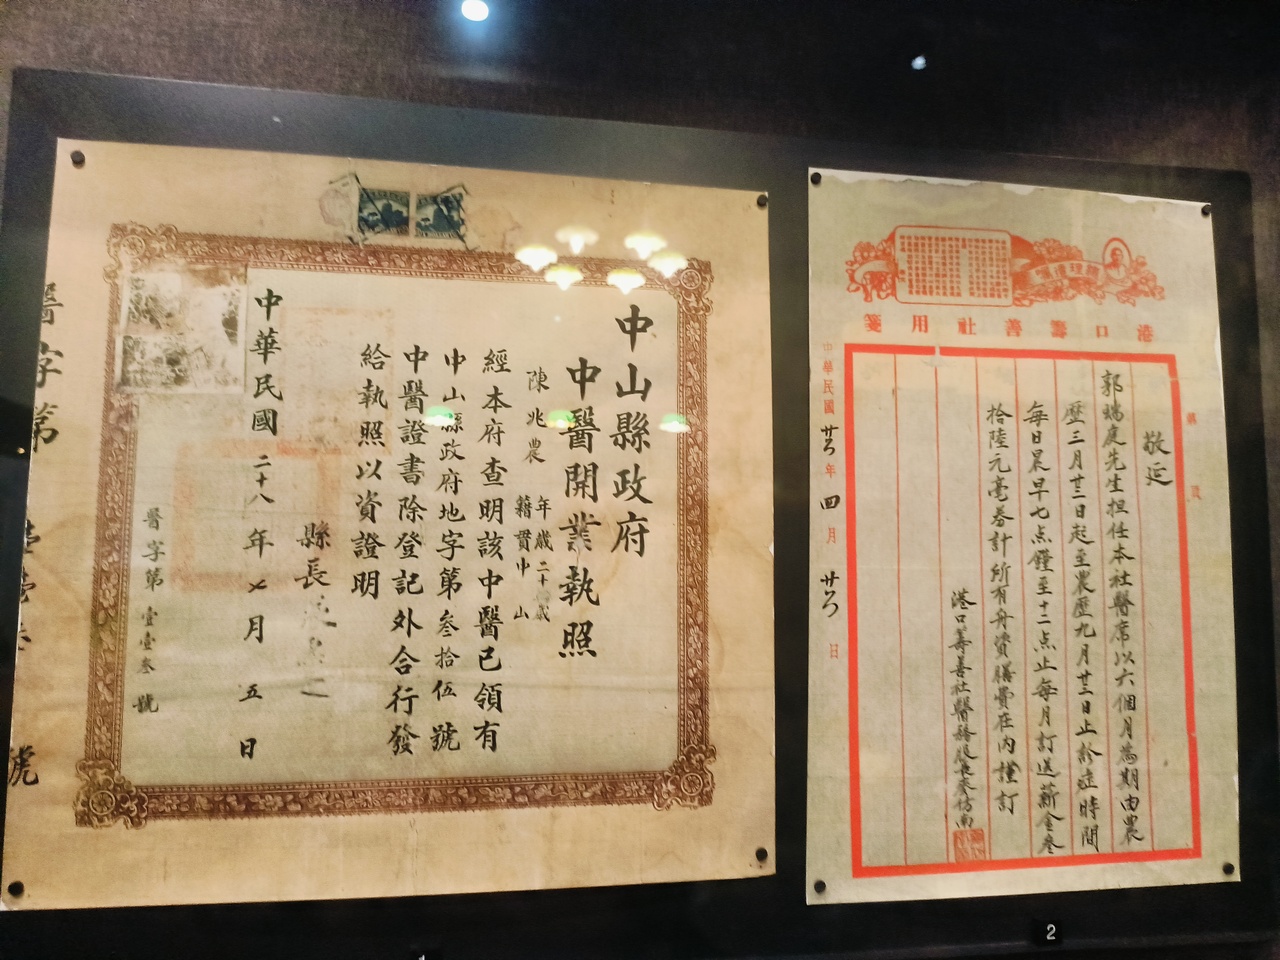 中山縣政府
中醫開業執照
陳兆農
年歲二十
籍貫中山
經本府查明該中醫已領有
中山縣政府地字第叁拾伍號
中醫證書除登記外合行發
給執照以資證明
縣長
中華民國二十八年七月五日
醫字第壹壹叁號
醫字第
號
總理遺囑
港口籌善社用箋
敬延
郭端庭先生担任本社醫席以六個月為期由農
歷三月廿三日起至農歷九月廿三日止診症時間
每日晨早七点鐘至十二点止每月訂送薪金叁
拾陸元毫券計所有舟資膳費在內謹訂
港口籌善社醫務股長麥
中華民國
年四月
日
2